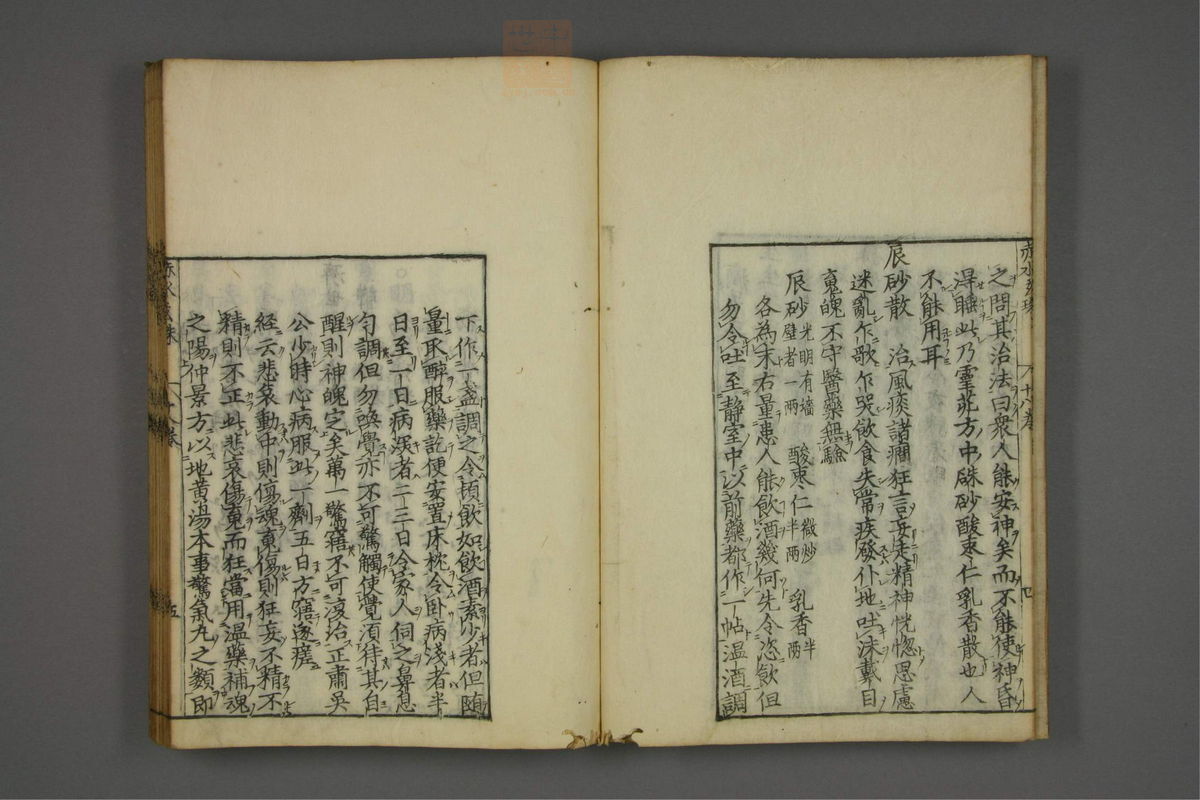 之問其治法曰衆人能安神矣而不能使神昏
得睡此乃靈苑方中硃砂酸棗仁乳香散也人
不能用耳
辰砂散 治風痰諸癇狂言妄走精神恍惚思慮
迷亂乍歌乍哭飲食失常疾發仆地吐沫戴目
䰟魄不守醫藥無驗
辰砂光明有墻壁者一兩 酸棗仁微炒半兩 乳香半兩
各為末右量患人能飲酒幾何先令恣飲但
勿令吐至静室中以前藥都作一帖温酒調
下作一盞調之令頓飲如飲酒素少者但随
量取醉服藥訖便安置床枕令卧病淺者半
日至一日病深者二三日令家人伺之鼻息
匀調但勿喚覺亦不可驚觸使覺須待其自
醒則神魄定矣萬一驚寤不可復治正肅吳
公少時心病服此一劑五日方寤遂瘥
経云悲哀動中則傷魂䰟傷則狂妄不精不
精則不正此悲哀傷䰟而狂當用温藥補魂
之陽仲景方以地黄湯本事驚氣丸之類即
赤水玄珠 十八卷 四
赤水玄珠 十八卷 五